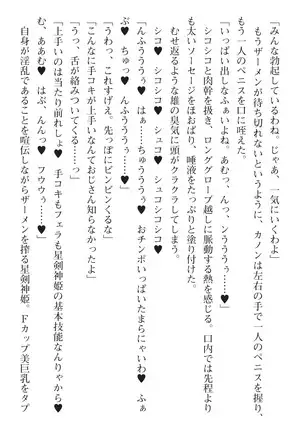 「みんな勃起しているわね。じゃあ、これから……」
もうザーメンが待ち切れないというように、カノンは左右の手で一人のペニスを握り、
もう一人のペニスを口に咥えた。
「いっぱい出しなふぁいよね。あむっ、んっ、ンうううぅ……♥」
シコシコと肉幹を扱き、ロンググローブ越しに脈動する熱を感じる。口内では先程より
も太いソーセージをほおばり、唾液をたっぷりと塗り付けた。
むせ返るような雄の臭気に頭がクラクラしてしまう。
シコ♥　シコ♥　シュコ♥　シュコシコシコ♥
「んふうううぅ♥　はぁ……ちゅううぅ♥　おチンポいっぱいたまらにゃいわ♥　ふぁ
ぷ♥　ちゅっ♥　んふううぅぅ……♥」
「うわっ、これすげえ。先っぽにビンビンくるな」
「こんなに手コキが上手いなんておじさん知らなかったよ」
「うっ、舌が絡みついてくる……っ」
「上手いのは当たり前れしょ♥　手コキもフェラも星剣神姫の基本技能なんりゃから♥
む、ああむ♥　はぶ、んんっ♥　フウウぅ……♥」
自身が淫乱であることを喧伝しながらザーメンを搾る星剣神姫。Ｆカップ美巨乳をタプ